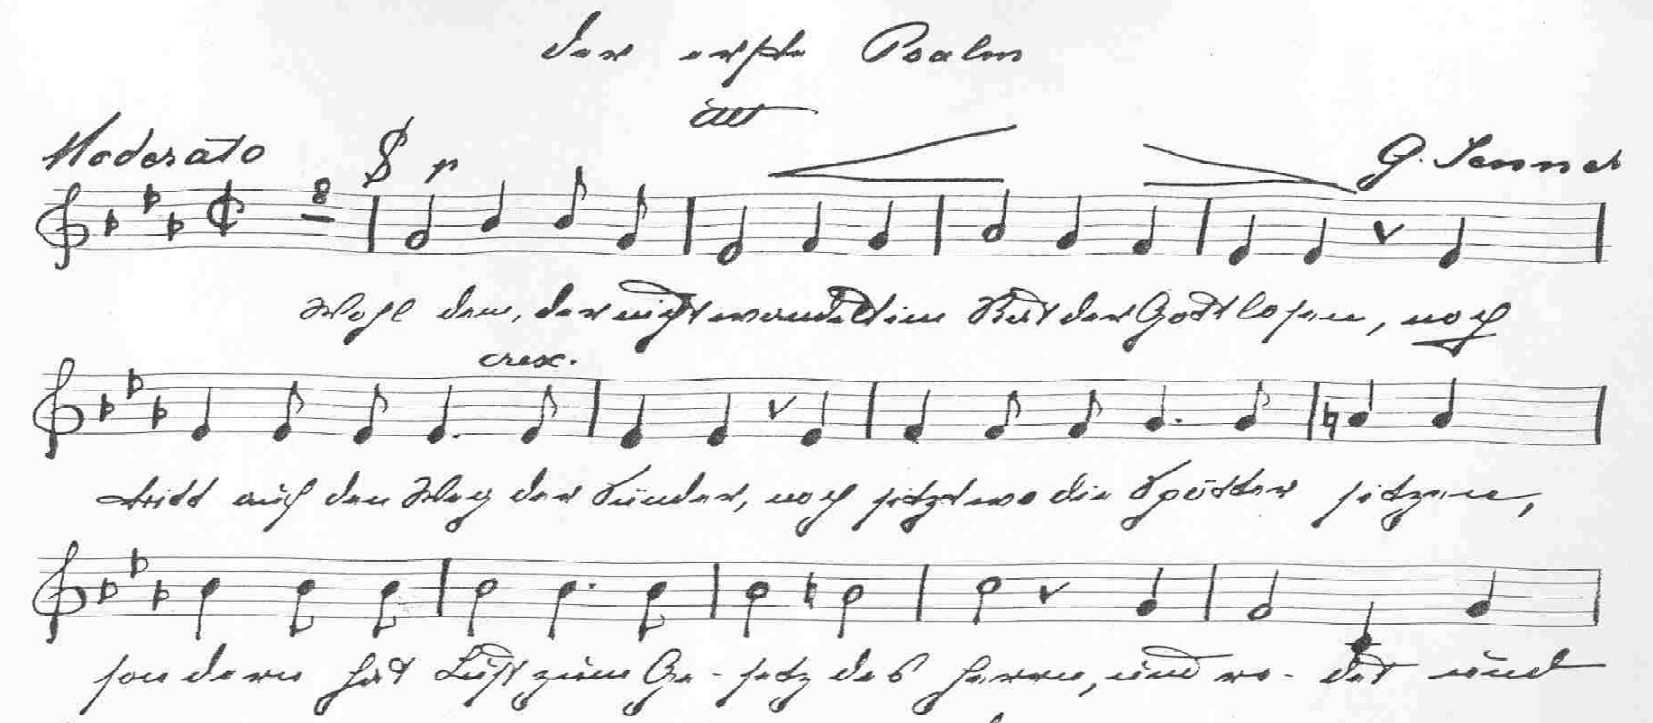 Der erste Psalm
Alt
Moderato
p
G. Sennet
8
Wohl dem, der nicht wandelt im Rat der Gottlosen, noch
cresc.
tritt auf den Weg der Sünder, noch sitzt wo die Spötter sitzen,
sondern hat Lust zum Ge - setz des Herrn, und re - det